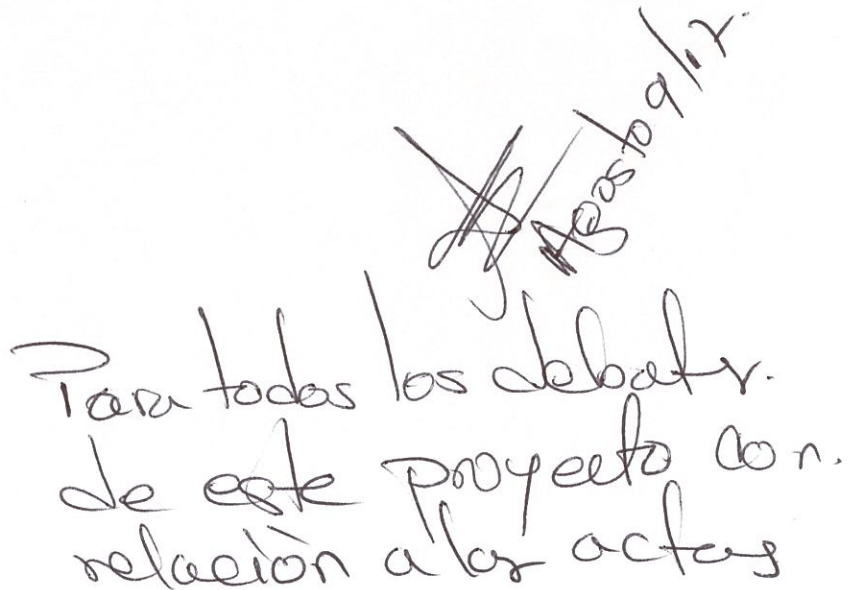 Agosto 9/12.
Para todos los debates.
de este proyecto con.
relación a las actas